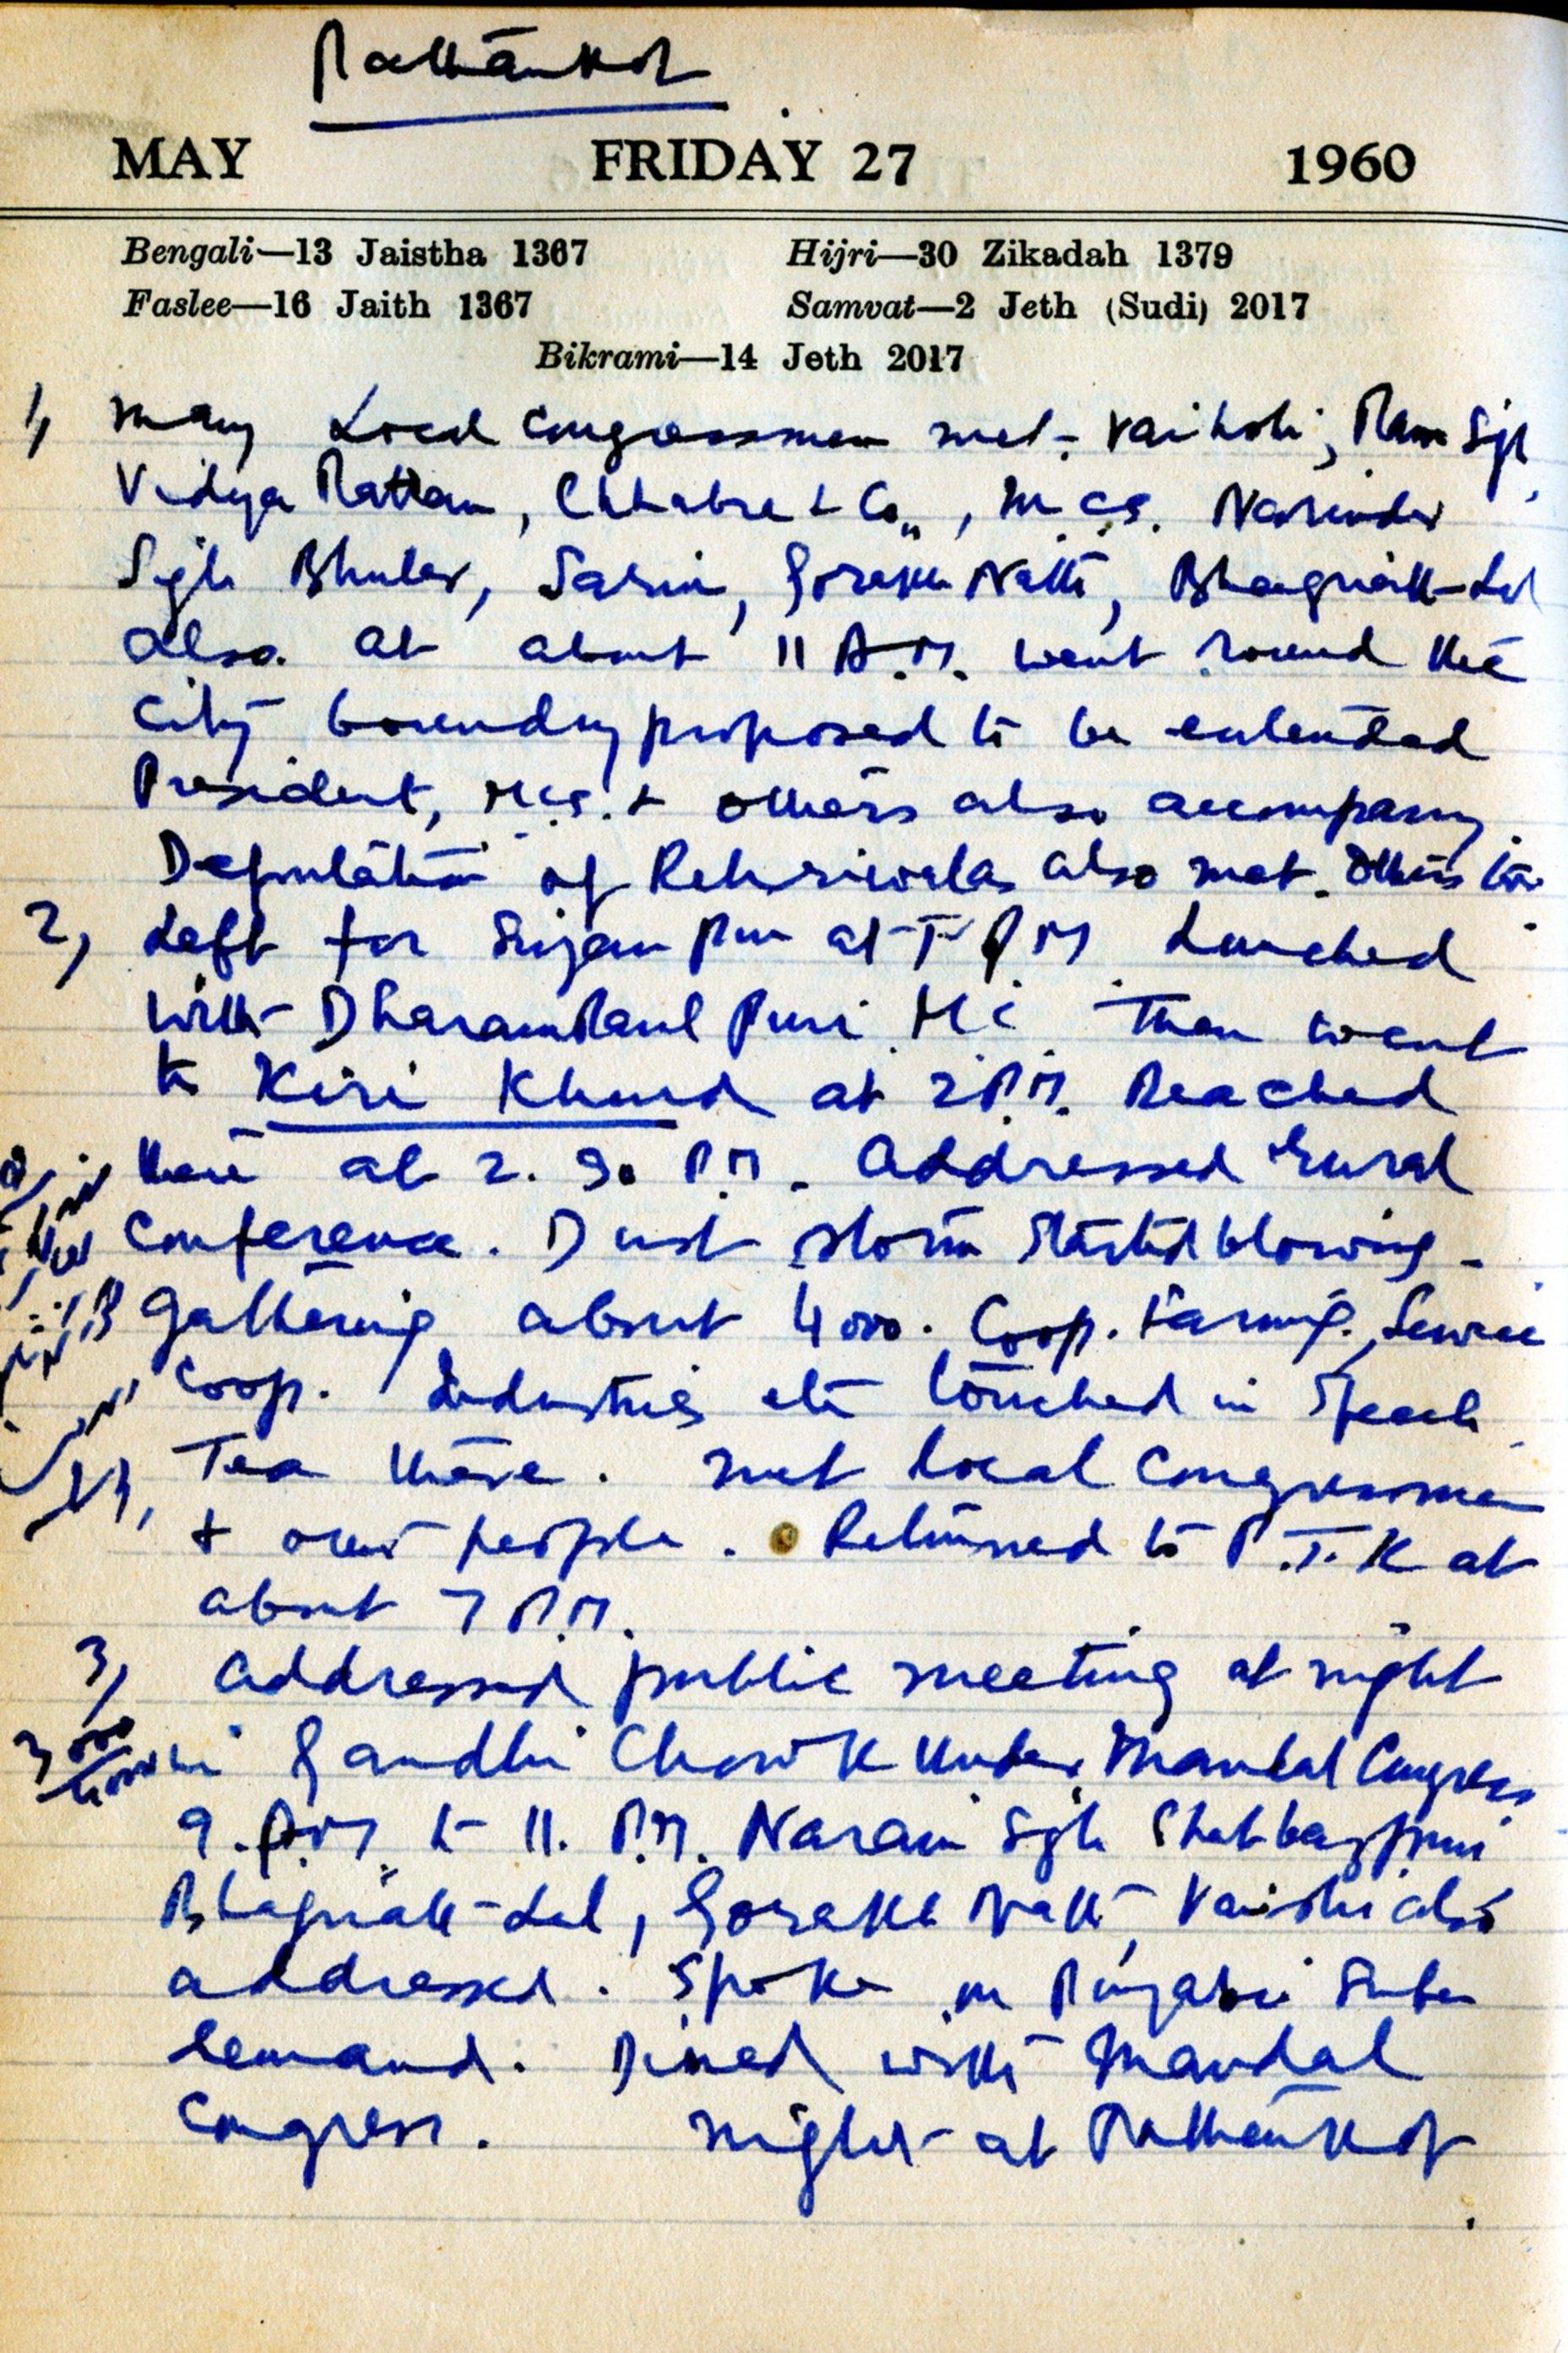 Pathankot
MAY FRIDAY 27 1960
Bengali—13 Jaistha 1367 Hijri—30 Zikadah 1379
Faslee—16 Jaith 1367 Samvat—2 Jeth (Sudi) 2017
Bikrami—14 Jeth 2017
1, Many Local Congressmen met - Ram Sgh
Vidya Rattan, Chhabra & Co., M.Cs. Narinder
Sgh Bhuler, Sarin, Gorakh Nath, Bhagnath Lal
also. at about 11 A.M. went round the
City boundry proposed to be extended
President, M.Cs. & others also accompany.
Deputation of Rehriwalas also met. Others too.
2, Left for Sujanpur at 1 P.M. Lunched
with Dharampaul Puri M.C. Then went
to Kiri Khurd at 2 P.M. Reached
there at 2.30 P.M. Addressed rural
Conference. Dust storm started blowing -
gathering about 4000. Coop. Farming, Service
Coop. Industries etc touched in speech.
Tea there. Met local Congressmen
& our people. Returned to P.T.K at
about 7 P.M.
3, Addressed public meeting at night
3000 in Gandhi Chowk under Mandal Congress
9. P.M. to 11. P.M. Narain Sgh Shahbazpuri
Bhagnath Lal, Gorakh Nath, also
addressed. Spoke on Punjabi Suba
demand. Dined with Mandal
Congress. Night at Pathankot